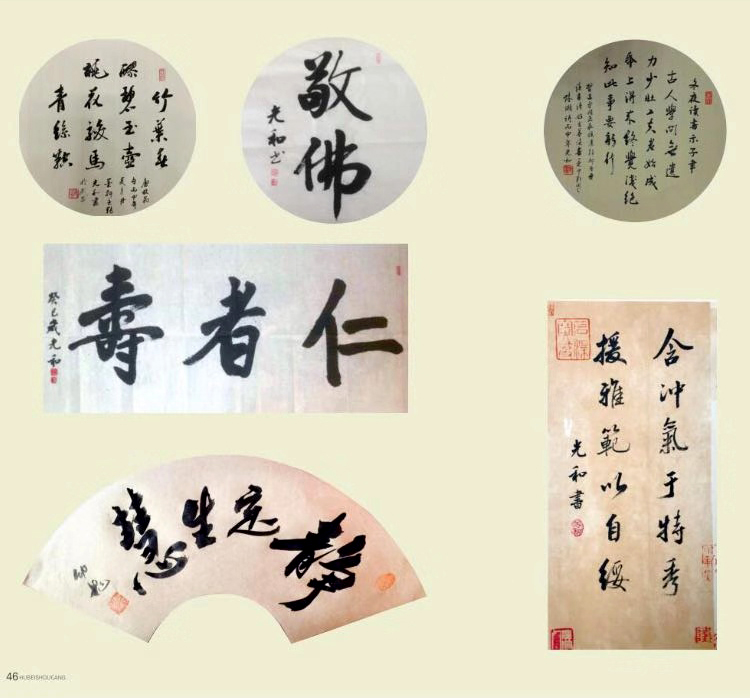 竹葉春
醪碧玉壺
桃花駿馬
青絲鞚
敬佛
光和书
冬夜讀書示子聿
古人學問無遺
力少壯工夫老始成
紙上得來終覺淺絕
知此事要躬行
陸游詩丙申年光和
仁者壽
癸巳歲光和
含沖氣于特秀
援雅範以自綏
光和書
靜定生慧
46 HUBEISHOUCANG